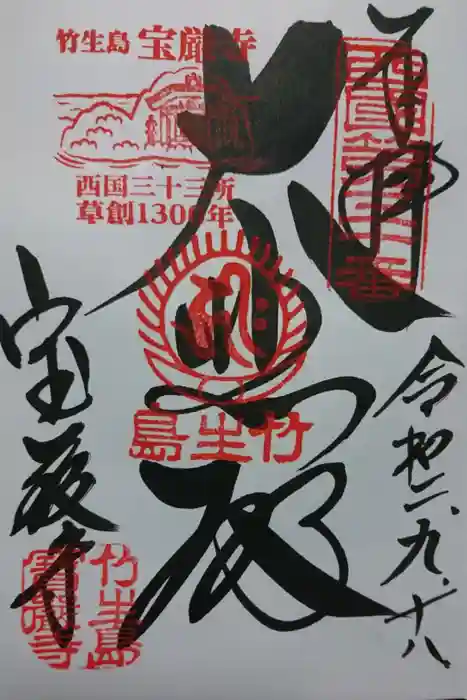 奉拝
西国第三十番
令和二、九、十八
竹生島 宝厳寺
西国三十三所
草創1300年
大悲殿
竹生島
宝厳寺
竹生島
寶嚴寺